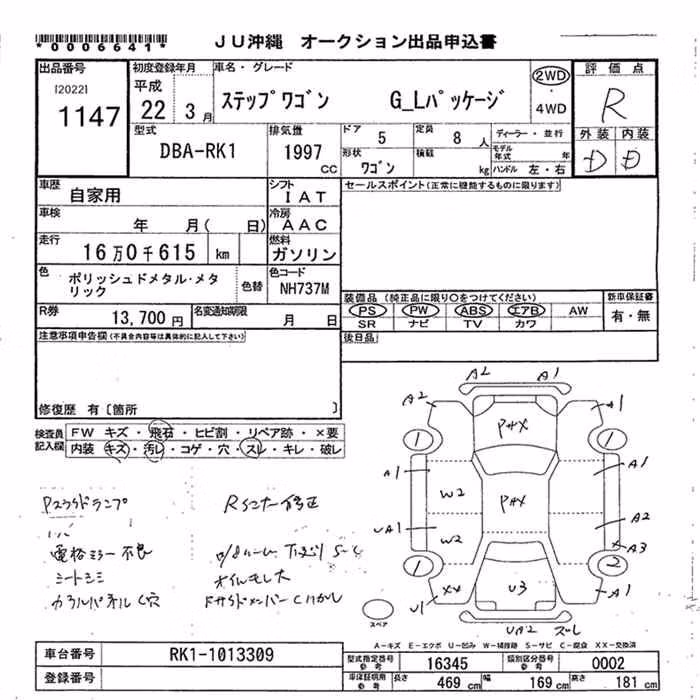 *0006641*
JU沖縄 オークション出品申込書
出品番号
[2022]
1147
初度登録年月
平成
22 3月
車名・グレード
ステップワゴン G_Lパッケージ
2WD
4WD
評価点
R
外装 内装
D D
型式
DBA-RK1
排気量
1997 CC
ドア 5
定員 8 人
形状 ワゴン
積載 kg
ディーラー・並行
モデル年式 年
ハンドル 左・右
車歴 自家用
シフト IAT
セールスポイント(正常に機能するものに限ります)
車検 年 月( 日)
冷房 AAC
走行 16万0千615 km
燃料 ガソリン
色 ポリッシュドメタル・メタリック
色替
色コード NH737M
R券 13,700円
名変通知期限 月 日
装備品(純正品に限り○をつけてください)
新車保証書
PS PW ABS エアB AW
SR ナビ TV カワ
有・無
注意事項申告欄(不具合内容等は具体的に記入して下さい)
後日品
修復歴 有〔箇所 〕
検査員記入欄
FW キズ・飛石・ヒビ割・リペア跡・×要
内装・キズ・汚レ・コゲ・穴・スレ・キレ・破レ
A2 A1
A2 A1
P××
1 1
A1 A1
W2 P××
UA1 A2
W2 A3
1 2
XX U3 A1
U1
UA2 スレ
スペア
Rインナー修正
電格ミラー不良
シートシミ
A-キズ E-エクボ U-凹み W-補修跡 S-サビ C-腐食 XX-交換済
車台番号 RK1-1013309
型式指定番号参考 16345
類別区分番号参考 0002
登録番号
車庫証明用参考
長さ 469cm 幅 169cm 高さ 181cm